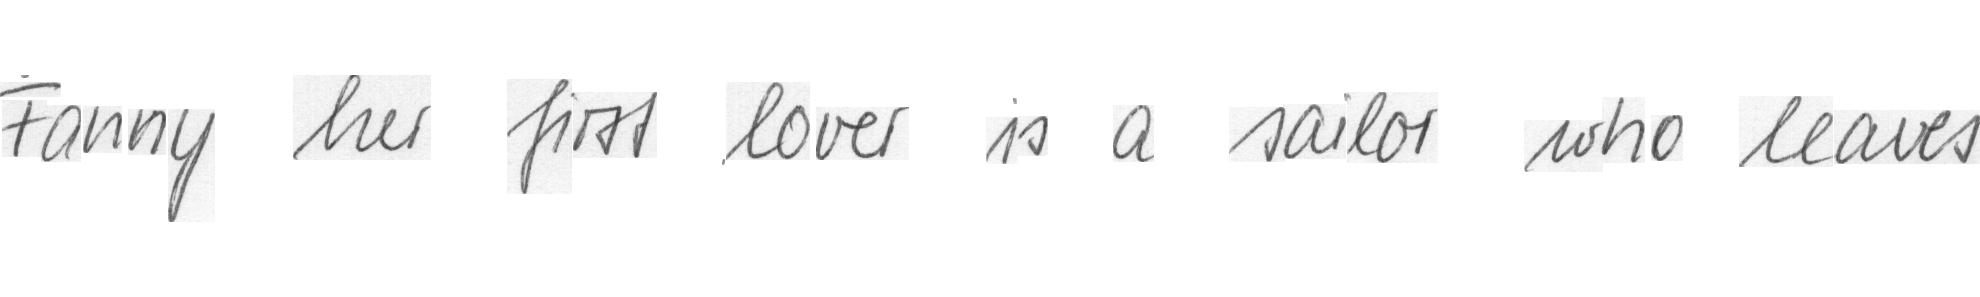 Fanny her first lover is a sailor who leaves